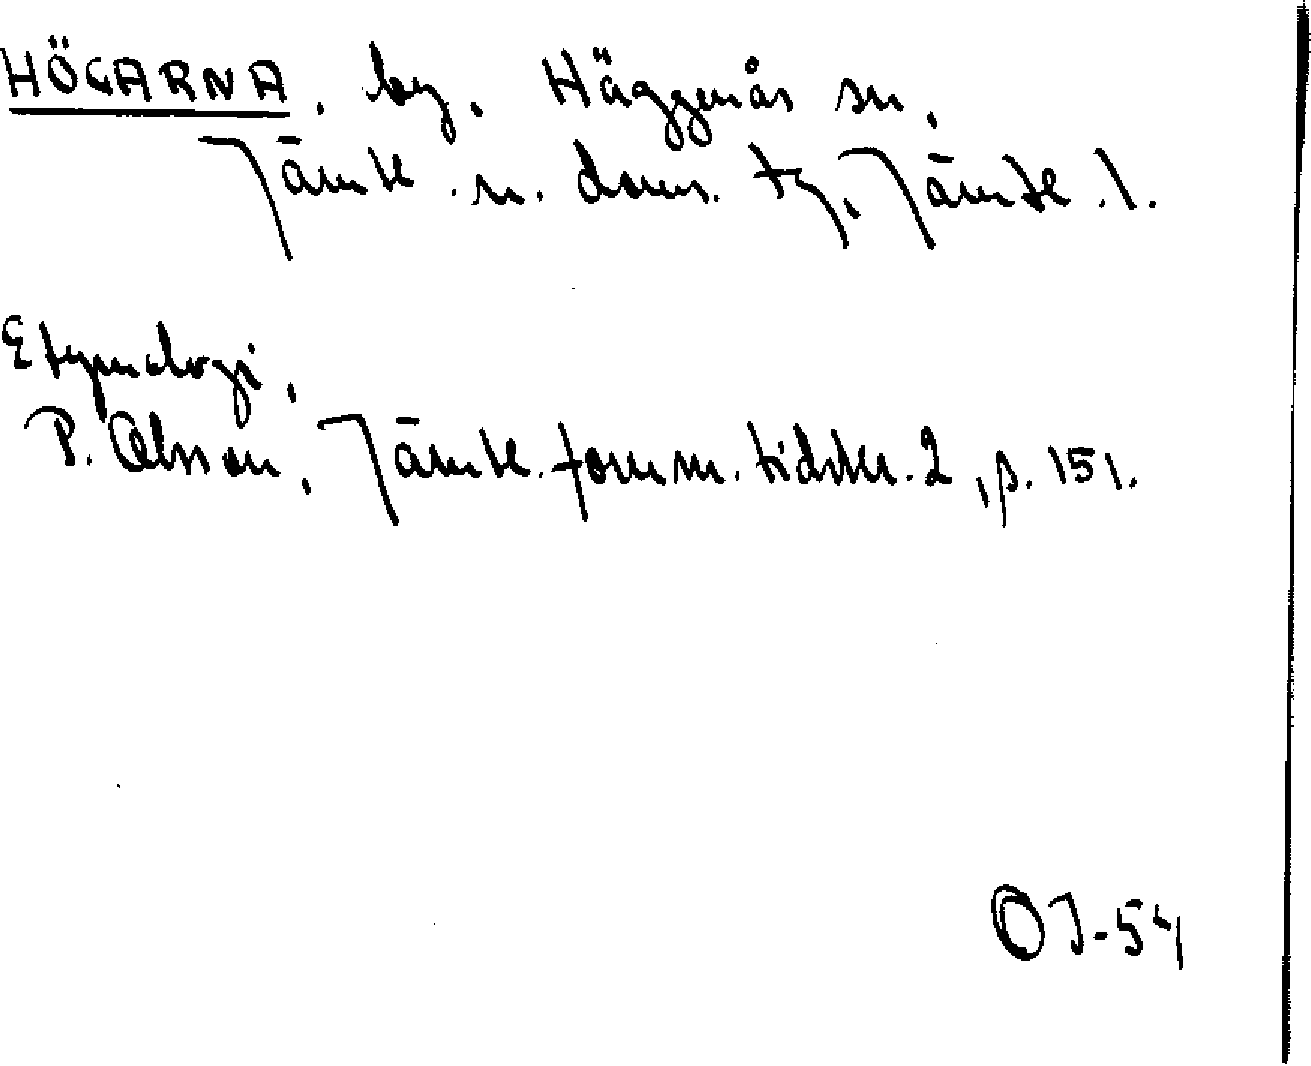 HÖGARNA, by, Häggenås sn,
Jämtl. n. doms. tg, Jämtl. l.
Etymologi,
P. Olsson, Jämtl. fornm. tidskr. 2, p. 151.
OJ-54